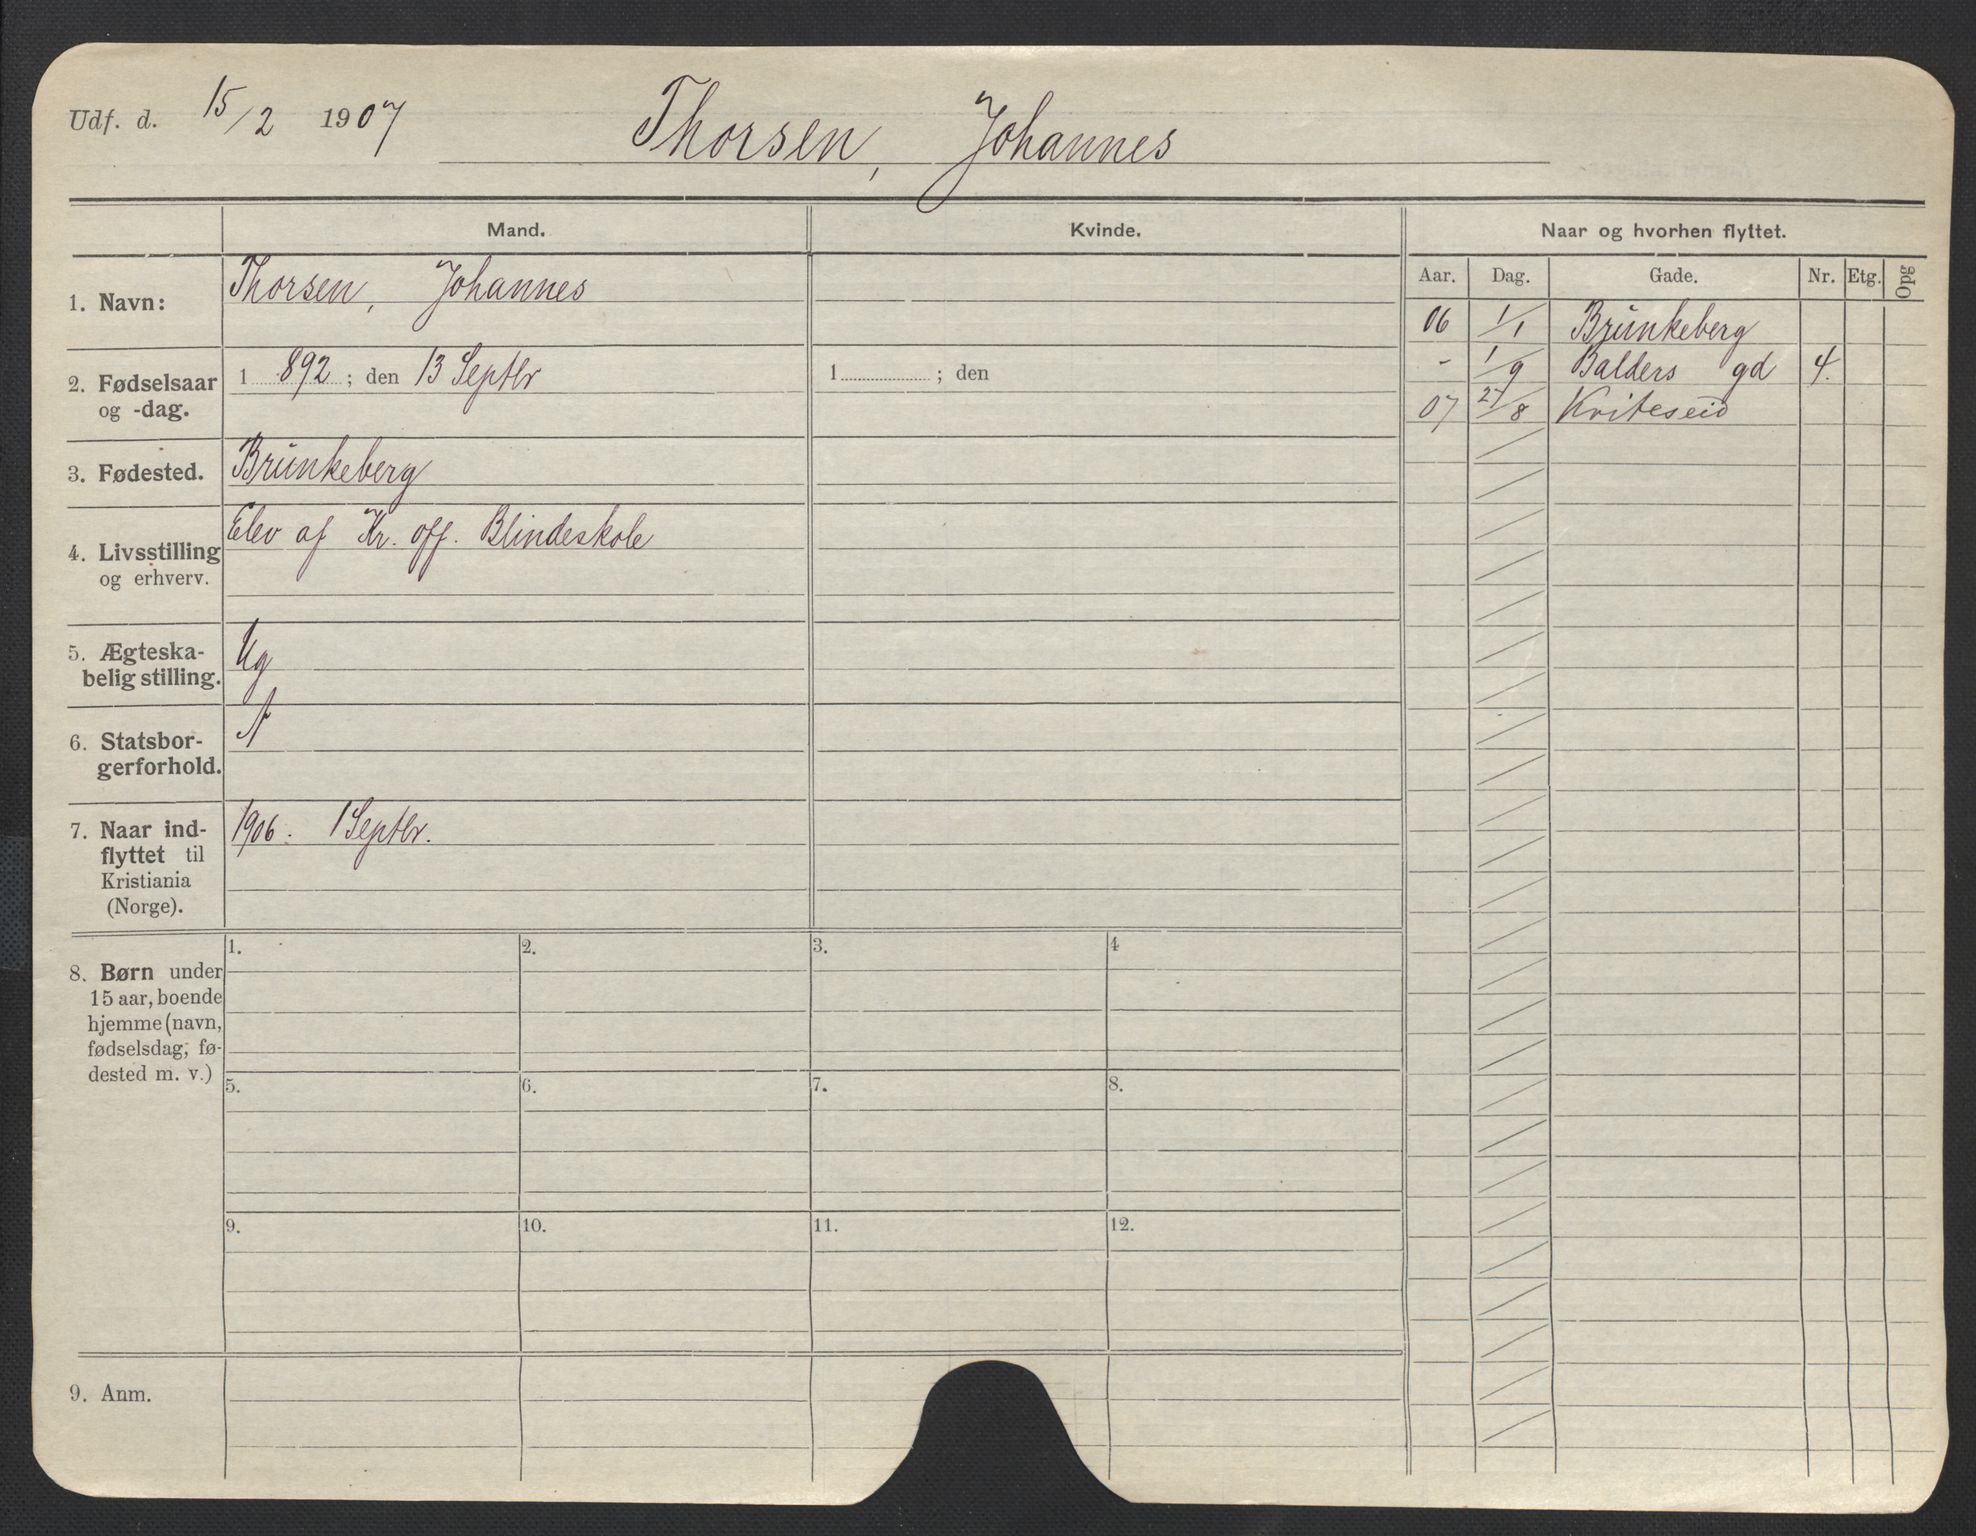 Udf. d. 15/2 1907 Thorsen, Johannes
Mand. Kvinde. Naar og hvorhen flyttet.
Aar. Dag. Gade. Nr. Etg. Opg
1. Navn: Thorsen, Johannes
2. Fødselsaar og -dag. 1 892 ; den 13 Septbr 1 ; den
3. Fødested. Brunkeberg
4. Livsstilling og erhverv. Elev af Kr. off. Blindeskole
5. Ægteska-
belig stilling. Ug
6. Statsbor-
gerforhold. N
7. Naar ind-
flyttet til
Kristiania
(Norge). 1906. 1 Septbr.
8. Børn under
15 aar, boende
hjemme (navn,
fødselsdag, fø-
dested m. v.)
1. 2. 3. 4
5. 6. 7. 8.
9. 10. 11. 12.
9. Anm.
06 1/1 Brunkeberg
- 1/9 Balders gd 4.
07 27/8 Kviteseid